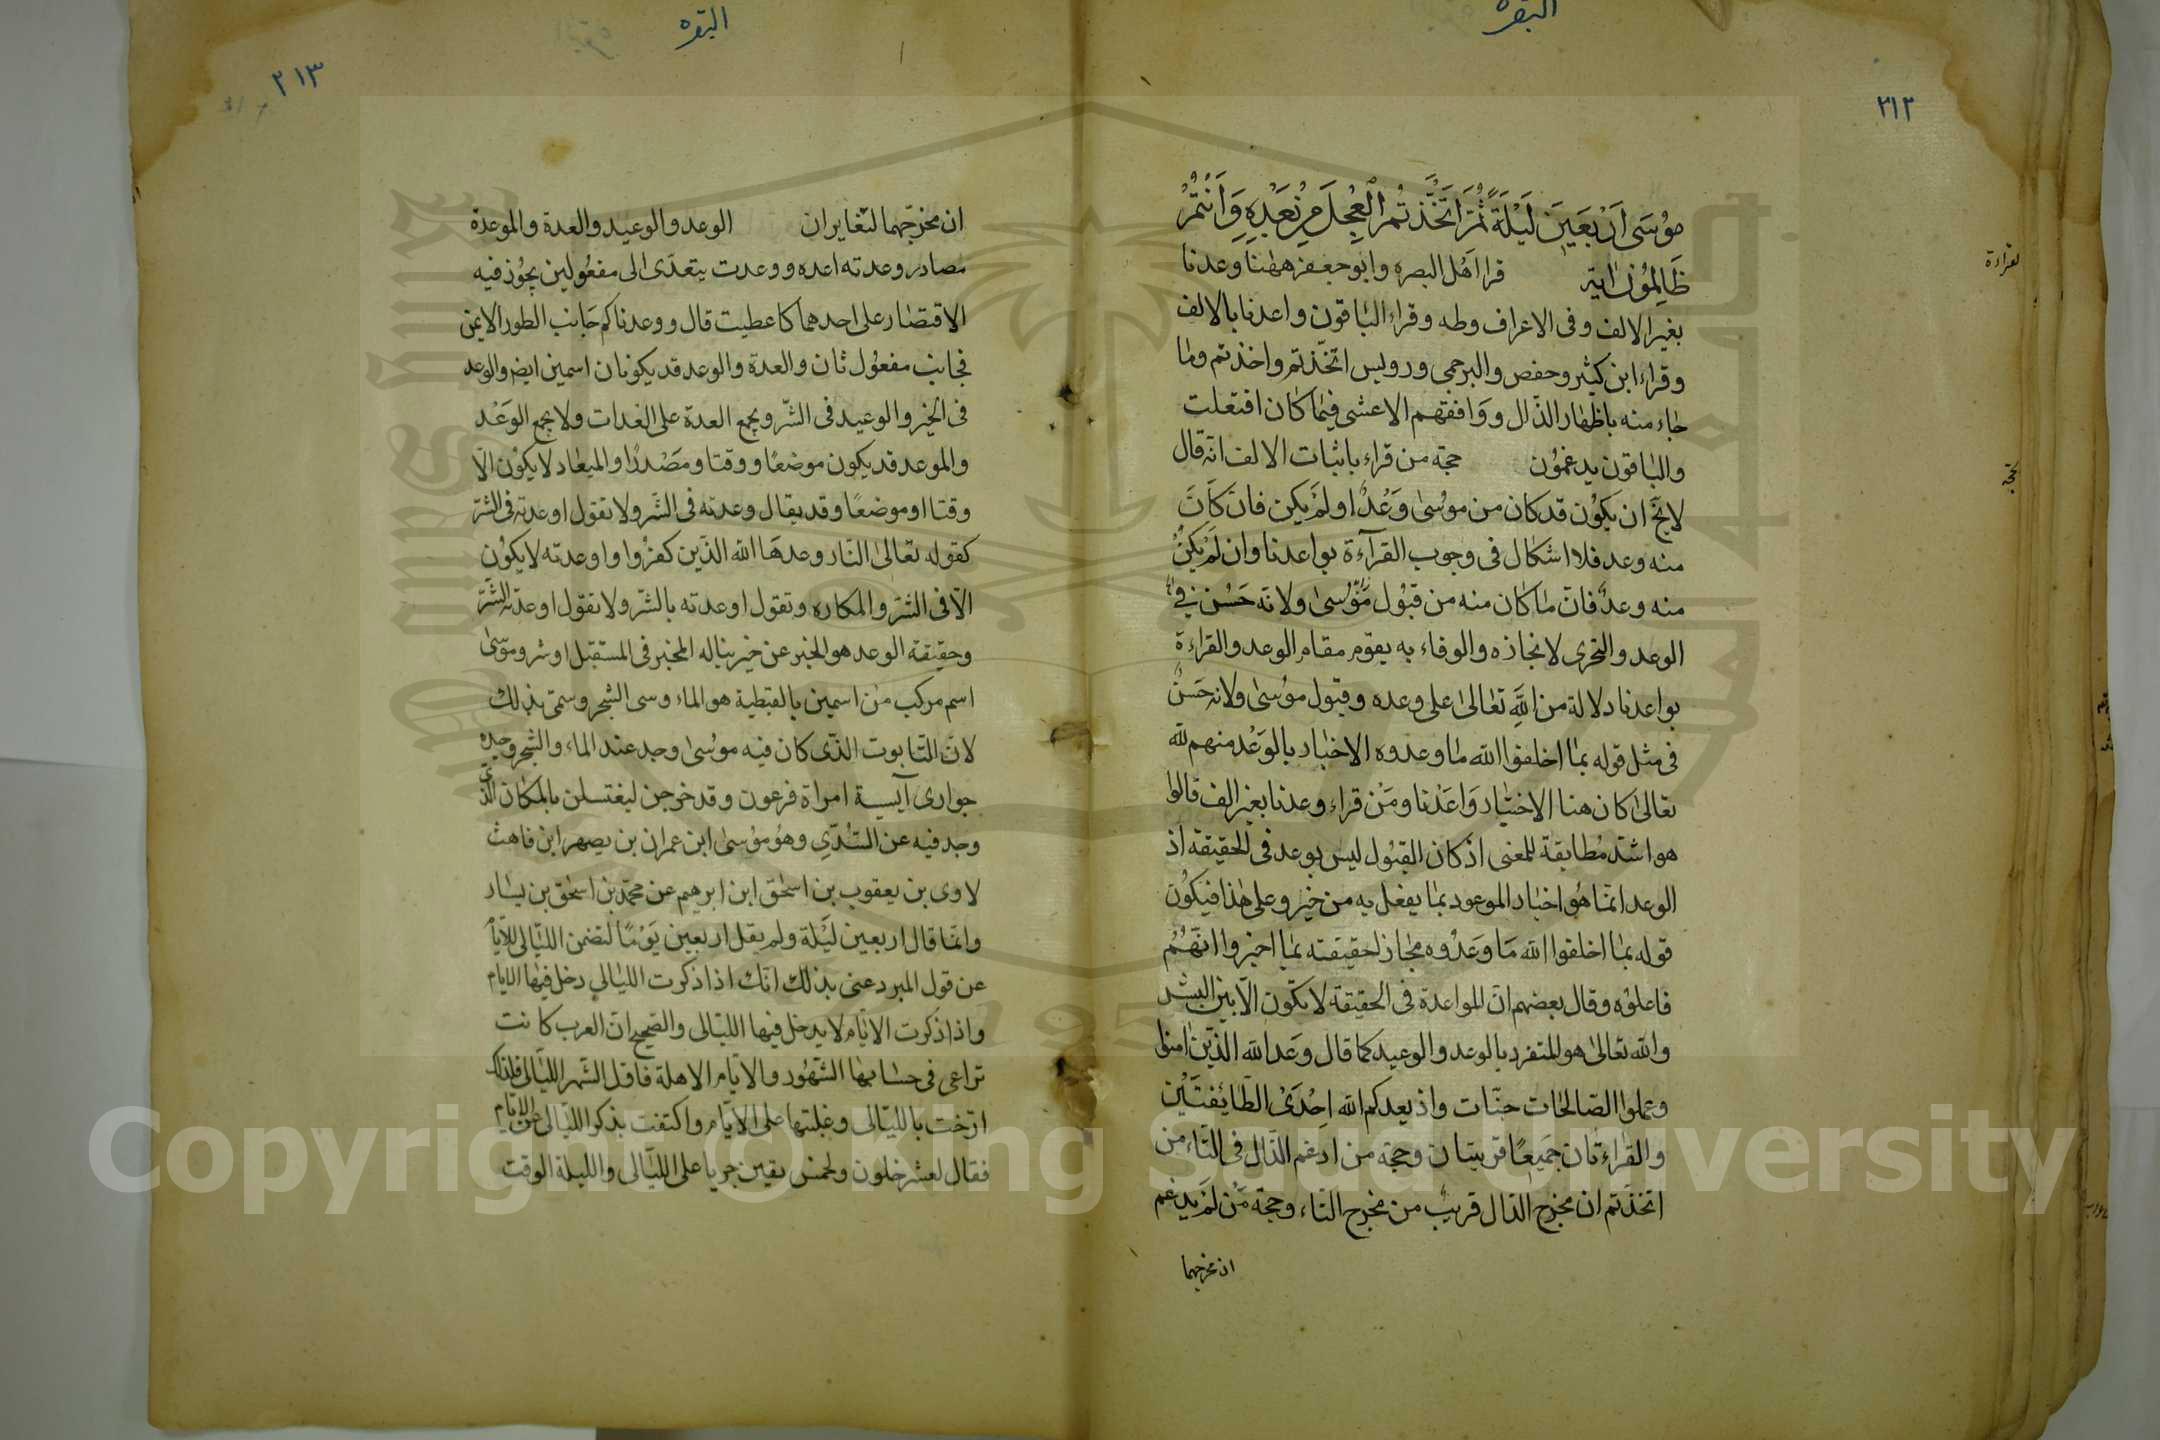 البقره
٢١٢
موُسَى اَرْبَعَينَ لَيْلَةً ثُمَّ اتَّخَّذتُمُ الْعِجْلَ مِنْ بَعْدِهِ وَاَنْتُمْ
ظَالِمُوُنَ اية قرا اهَل البصره وابوجعفر ههُنا وعدنا
بغير الالف وفى الاعراف وطه وقراء البَاقون واعدنا بالالف
وقراء ابن كيثر وحفص والبرجمى ورويس اتخّذتم واخذتم وما
جاء منه باظهار الذّال ووَافقهم الاعشى فيما كان افتعلت
والباقون يدغموُن حجّة من قراء باثبات الالف انّه قال
لا يخَ ان يكوُن قد كان من موُسىٰ وَعُدٌ او لمَ يكن فان كَانَ
منه وعد فلا اشكال فى وجوب القرآءة بواعدنا وان لمَ يكنُ
منه وعدٌ فانّ ما كان منه من قبُول موُسىٰ ولانه حَسُن فى
الوعد والتحرى لانجازه والوفاء به يقوم مقام الوعد والقراءة
بواعدنا دلالة من اللهِ تعَالىٰ على وعده وقبول موُسىٰ ولانه حَسنٌ
فى مثل قوله بما اخلفوا الله ما وعدوه الاخبار بالوَعُد منهم لله
تعالىٰ كان هنا الاختيار وَاعَدنا ومَنْ قراء وعدنا بغير الف قالوا
هو اشدّ مُطابقة للمعنى اذ كان القبُول ليس بوعد فى الحقيقة اذ
الوعد انما هُو اخبار الموعود بما يفعل به من خير وعلى هٰذا فيكوُن
قوله بما اخلفوا الله مَا وَعَدُوه مجاز لحقيقته بما اخبروا انّهَمُ
فاعلوُه وقال بعضهم انّ المواعدة فى الحقيقة لا تكون الّا بين البشر
والله تعالىٰ هو المتفرد بالوعد والوعيد كما قال وَعَد الله الذّينَ اٰمنوا
وعملوا الصّالحات جنّات واذ يعدكم الله اِحُدَى الطّائفتَيُن
والقراءتان جَميعًا قريبتان وحجّة من ادغم الذّال فى التّاء من
اتخذَتم ان مخرج الذال قريبٌ من مخرج التّاء وحجّة مَنُ لمَ يدغم
ان مخرجهما
لقراءة
لحجّة
البقره
٢١٣
ان مخرجهما لتغايران الوعد والوعيد والعدة والموعدة
مصادر وعدته اعده ووعدت يتعدّى الى مفعُولين يجوُز فيه
الاقتصَار على احدهما كاعطيت قال ووعدناكم جَانب الطور الايمن
فجانب مفعُول ثان والعدة والوعد قد يكونان اسمين ايضا والوعد
فى الخير والوعيد فى الشّر ويجمع العدة على العدات ولا يجمع الوَعُد
والموعد قد يكون موضعًا ووقتا ومَصْدرًا والميعاد لا يكوُن الّا
وقتا او موضعًا وقد يقال وعدته فى الشّر ولا تقول اوعدته فى الشرّ
كقوله تعَالىٰ النّار وعدهَا الله الذّين كفرُوا واوعدته لا يكوُن
الّا فى الشّرّ والمكاره وتقول اوعدته بالشّر ولا تقول اوعدته الشّرّ
وحقيقة الوعد هو الخبر عن خير يناله المخبر فى المستقبل او شر وموسى
اسم مركب من اسمين بالقبطية هو الماء وسى الشجر وسمّى بذلك
لانّ التّابوت الذّى كان فيه موُسىٰ وجد عند الماء والشجر وجده
جوارى آسية امراة فرعون وقد خرجن ليغتسلن بالمكان الذّى
وجد فيه عن السُّدّيِ وهُو موُسىٰ ابن عمران بن يصهر ابن فاهث
لاوى بن يعقوب بن اسحٰق ابن ابرهيم عن محمّد بن اسحٰق بن يسار
وانمّا قال اربعين ليَلة ولم يقل اربعين يَومًا لتضمن الليّالى الايّام
عن قول المبرد عنى بذلك انّك اذا ذكرت الليٰالى دخل فيهٰا الايام
واذا ذكرت الايّام لا يدخل فيها الليّالى والصّحيح انّ العرب كانت
تراعى فى حسٰابها الشّهوُر والايّام الاهلة فاوّل الشّهر الليّالى فلذلك
ارّخت بالليّالى وغلبتها على الايّام واكتفت بذكر الليّالى عن الايّام
فقال لعشر خلون ولخمس بقين جريا على الليّالى والليلة الوقت
Copyright © King Saud University
1957